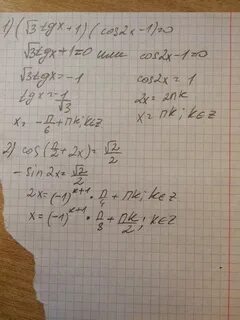 1) (√3 tgx+1)(cos2x-1)=0
√3tgx+1=0 или cos2x-1=0
√3tgx=-1 cos2x=1
tgx=-1/√3 2x=2πk
x=-π/6+πk; k∈Z x=πk; k∈Z
2) cos(π/2+2x)=√2/2
-sin2x=√2/2
2x=(-1)^(k+1)·π/4+πk; k∈Z
x=(-1)^(k+1)·π/8+πk/2; k∈Z